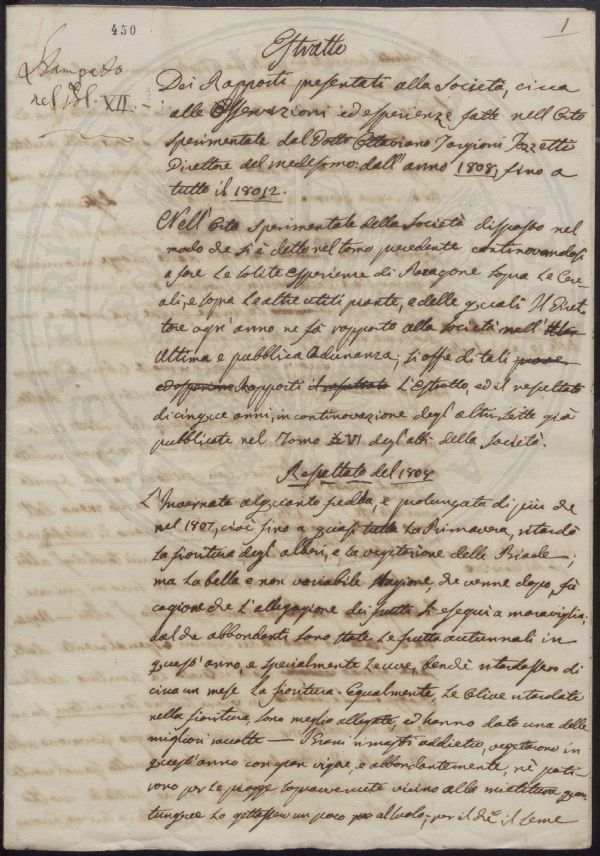 450
1
Stampato
nel Vol. XII.
Estratto
Dei Rapporti presentati alla Società, circa
alle Osservazioni ed esperienze fatte nell'Orto
sperimentale dal Dotto Ottaviano Targioni Tozzetti
Direttore del medesimo: dall'anno 1808, fino a
tutto il 18012.
Nell'Orto sperimentale della Società disposto nel
modo che si è detto nel tomo precedente continovandosi
a fare le solite esperienze di Ragione sopra le Cere-
ali, e sopra le altre utili piante, e delle quali Il Diret-
tore ogn'anno ne fà rapporto alla società nell'
Ultima e pubblica Adunanza; si offre di tali
Rapporti il resultato L'Estratto, ed il resultato
di cinque anni, in continovazione degl'altri sette già
pubblicati nel Tomo VI degl'atti della Società.
Resultato del 1808
L'Invernata alquanto fredda, e prolungata di più che
nel 1807, cioè fino a quasi tutta La Primavera, ritardò
La fioritura degl'alberi, e la vegetazione delle Biade;
ma La bella e non variabile stagione, che venne dopo, fù
cagione che L'allegagione dei frutti si eseguì a maraviglia;
dal che abbondanti sono state Le frutta autunnali in
quest'anno, e specialmente Le uve, benchè ritardassero di
circa un mese La fioritura. Egualmente, Le Olive ritardate
nella fioritura, sono meglio allegate, ed hanno dato una delle
migliori raccolte — I Grani rimasti addietro, vegetarono in
quest'anno con gran vigore, e abbondantemente, nè pati-
rono per le piogge sopravvenute vicino alla mietitura quan-
tunque Le gettassero un poco al suolo; per il che il seme